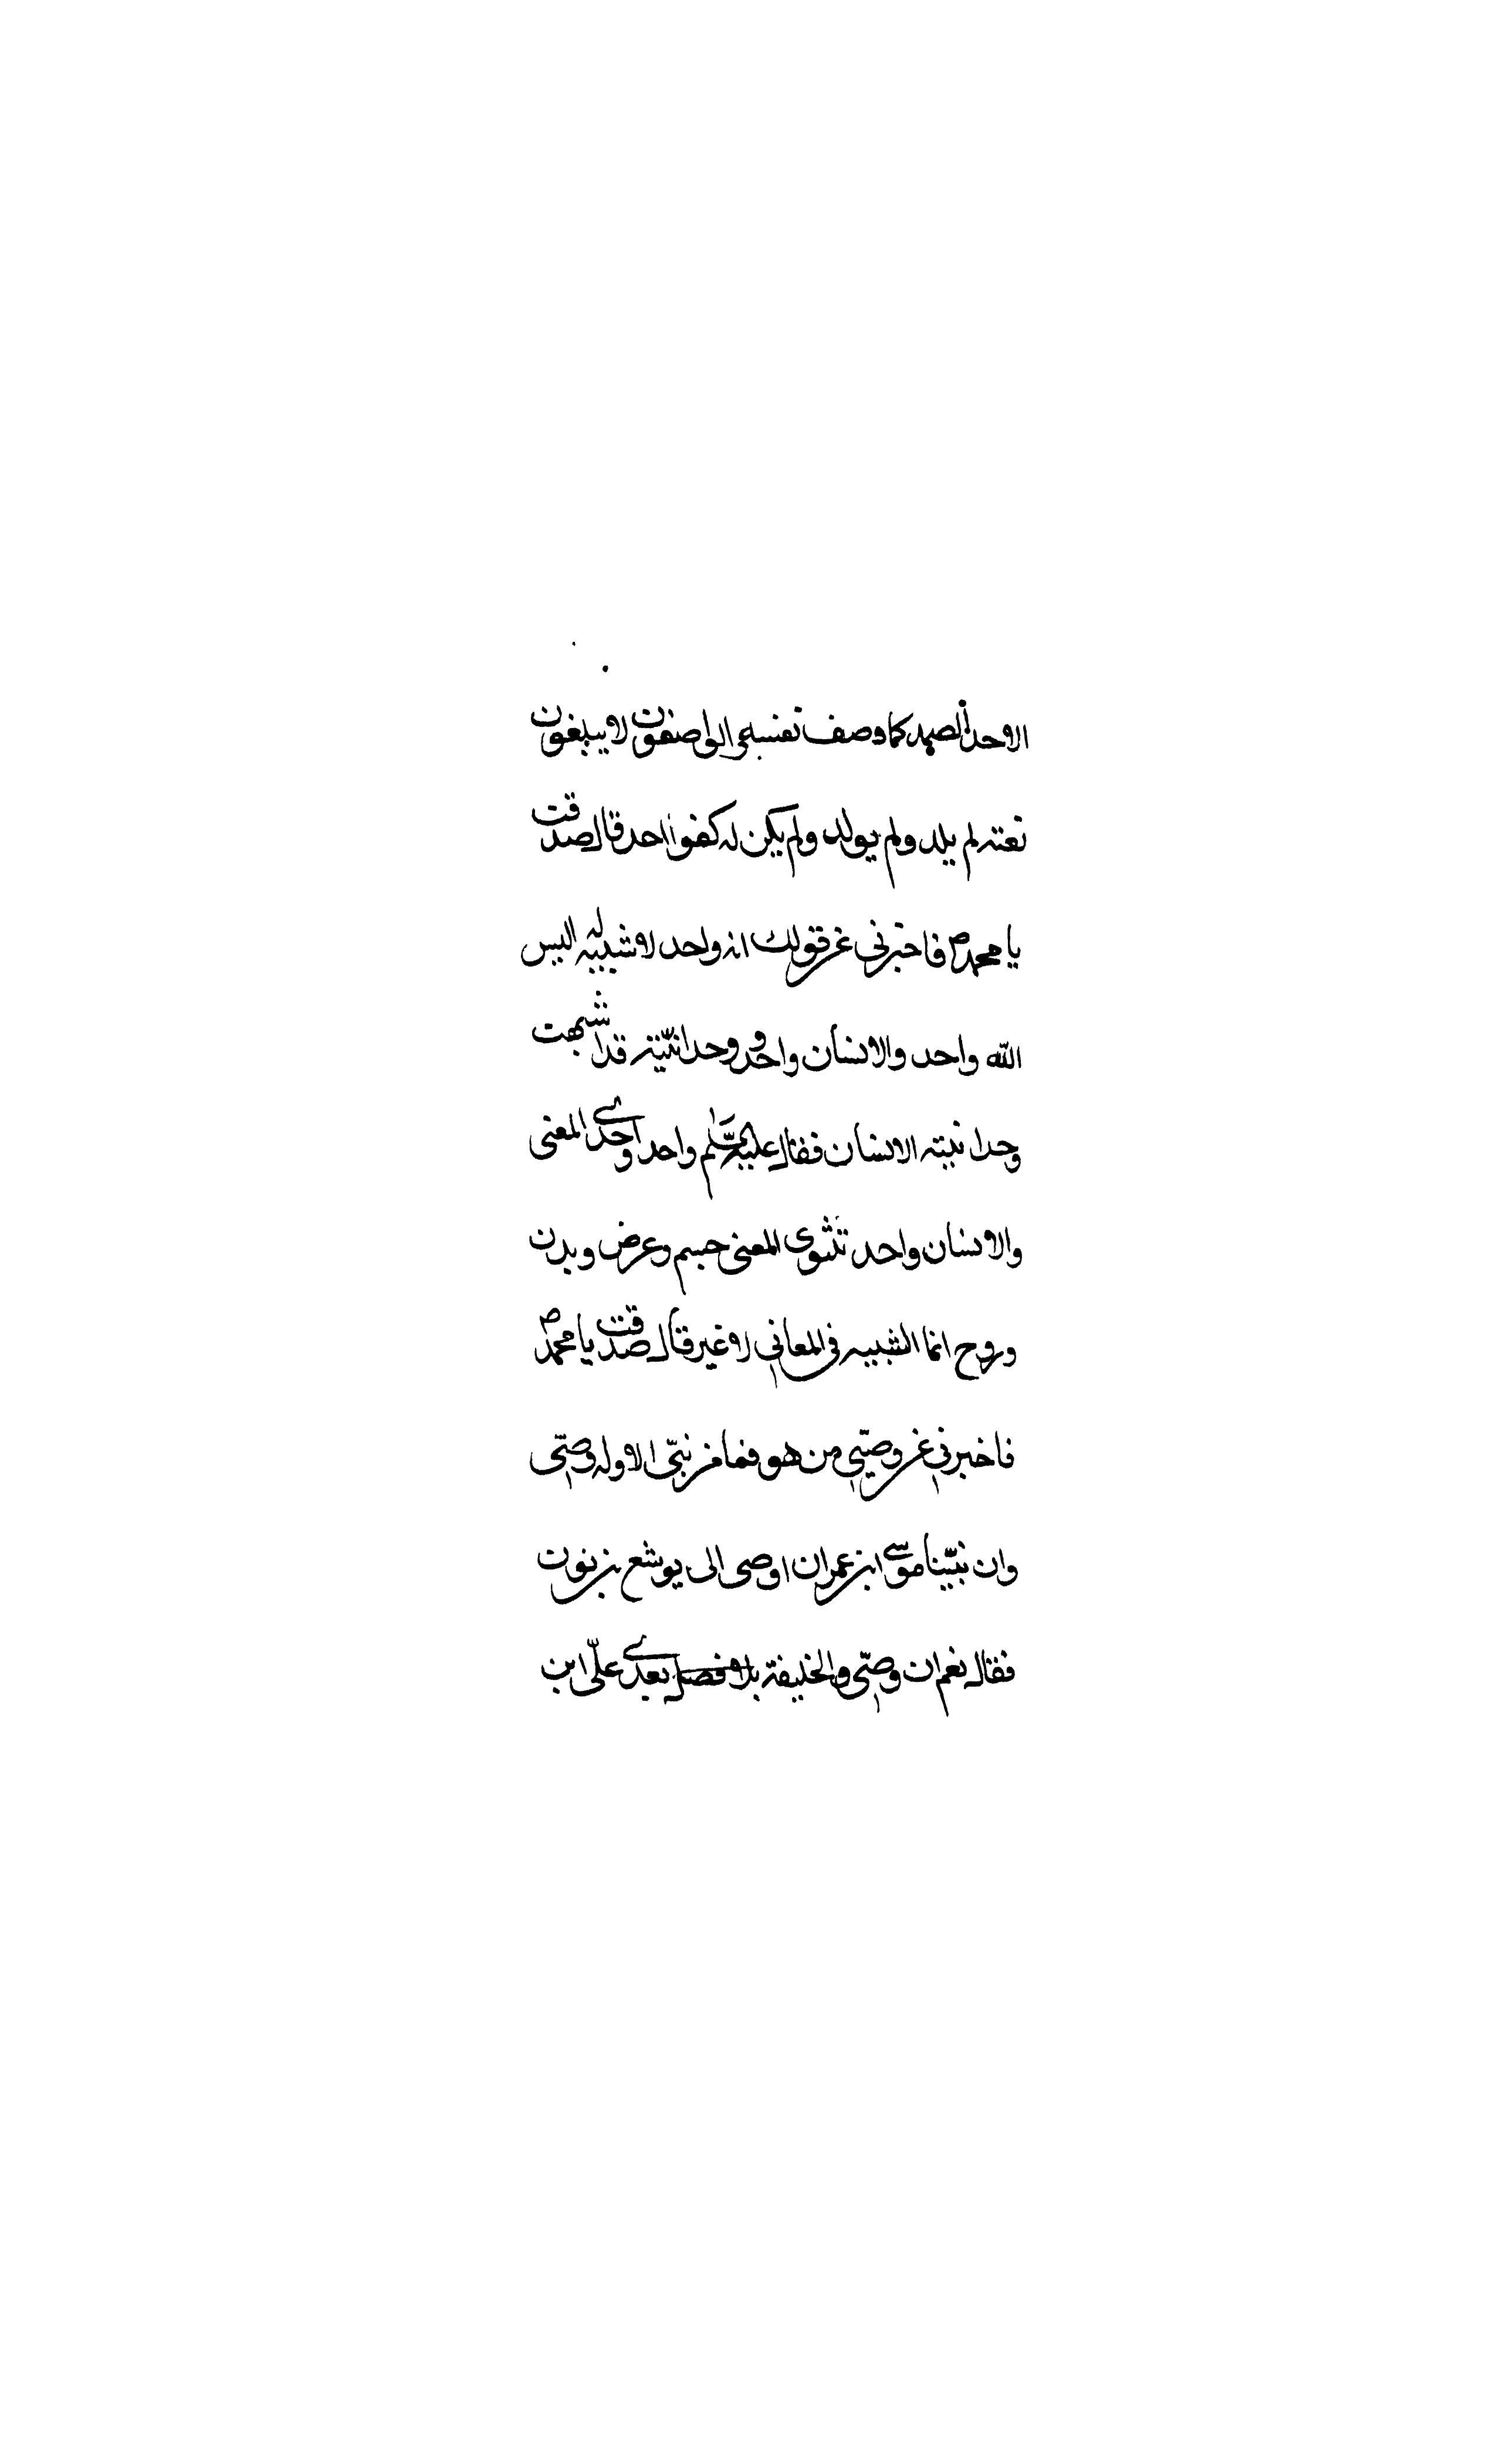 الاحد الصمد كما وصف نفسه الواصفون لا يبلغون
نعته لم يلد ولم يولد ولم يكن له كفوا احد قال صدقت
يا محمد ص فاخبرني عن قولك انه واحد لا شبيه له اليس
الله واحد والانسان واحد ووحدانيته قد اشبهت
وحدانيته الانسان فقال عليه السلم واحد احدي المعنى
والانسان واحد ثنوى المعنى جسم وعرض وبدن
وروح انما الشبيه فى المعاني لا غير قال صدقت يا محمد ص
فاخبرني عن وصيي من هو فما من نبي الا وله وصي
وان نبينا موسى ابن عمران اوصى الى يوشع بن نون
فقال نعم ان وصي والخليفة بلا فصل بعدي علي ابن